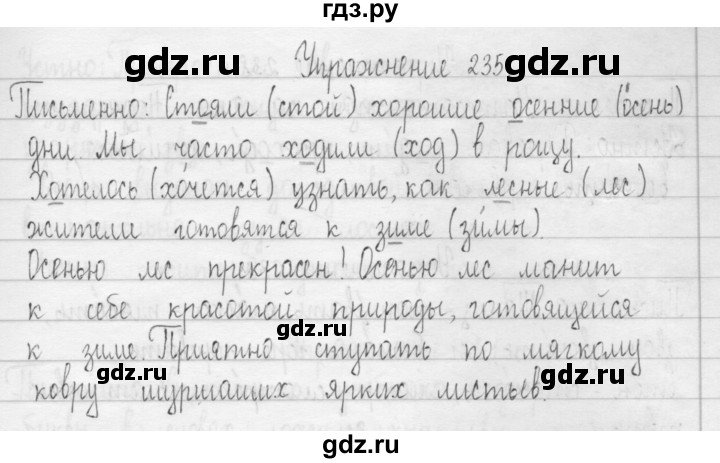 гдз.ру
gdz.ru gdz.ru
Упражнение 235
Письменно: Стояли (стой) хорошие осенние (о́сень)
дни. Мы часто ходили (ход) в рощу.
gdz.ru gdz.ru
Хотелось (хо́чется) узнать, как лесные (лес)
жители готовятся к зиме (зи́мы).
gdz.ru
Осенью лес прекрасен! Осенью лес манит
к себе красотой природы, готовящейся
gdz.ru
к зиме. Приятно ступать по мягкому
ковру шуршащих ярких листьев.
gdz.ru gdz.ru
gdz.ru